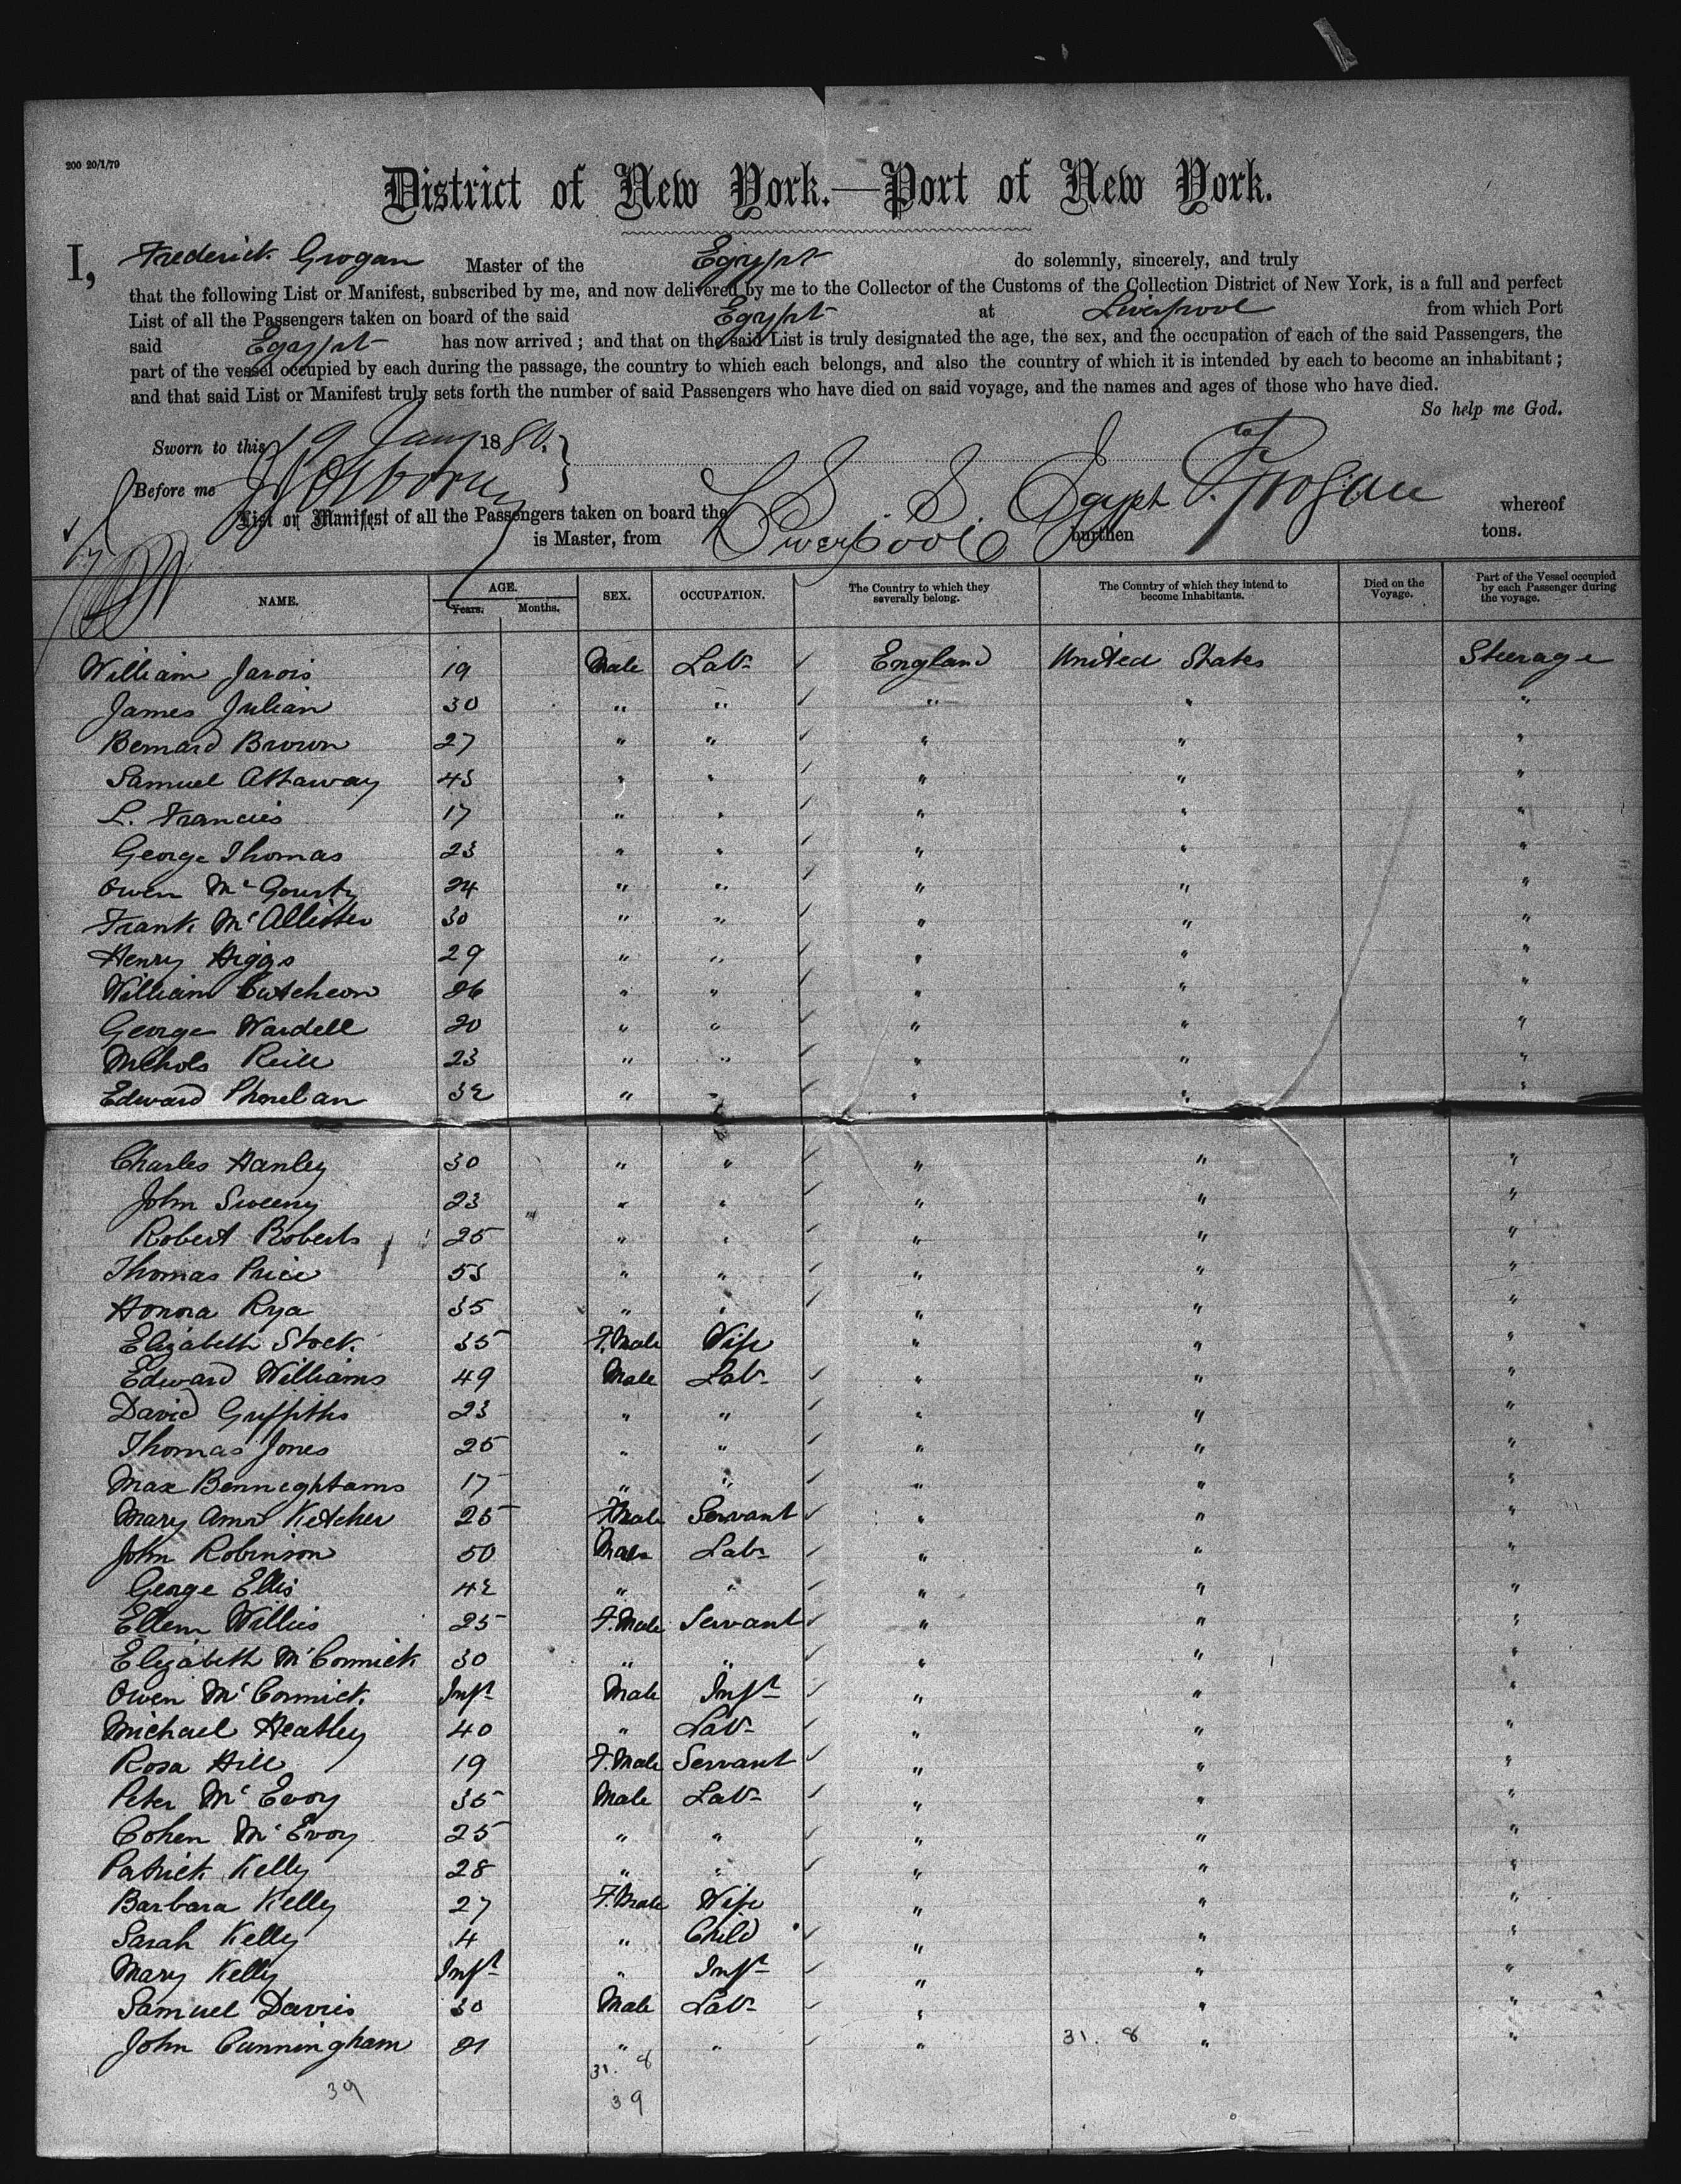 200 20/1/79
District of New York.—Port of New York.
I, Frederick Grogan Master of the Egypt do solemnly, sincerely, and truly
that the following List or Manifest, subscribed by me, and now delivered by me to the Collector of the Customs of the Collection District of New York, is a full and perfect
List of all the Passengers taken on board of the said Egypt at Liverpool from which Port
said Egypt has now arrived; and that on the said List is truly designated the age, the sex, and the occupation of each of the said Passengers, the
part of the vessel occupied by each during the passage, the country to which each belongs, and also the country of which it is intended by each to become an inhabitant;
and that said List or Manifest truly sets forth the number of said Passengers who have died on said voyage, and the names and ages of those who have died.
So help me God.
Sworn to this 19 Jany 1880.
Before me
List or Manifest of all the Passengers taken on board the S S Egypt F. Grogan whereof
is Master, from Liverpool burthen tons.
NAME. AGE. Years. Months. SEX. OCCUPATION. The Country to which they severally belong. The Country of which they intend to become Inhabitants. Died on the Voyage. Part of the Vessel occupied by each Passenger during the voyage.
William Jarvis 19 Male Labr ✓ England United States Steerage
James Julian 30 " " ✓ " " "
Bernard Brown 27 " " ✓ " " "
Samuel Attaway 43 " " ✓ " " "
L. Francies 17 " " ✓ " " "
George Thomas 23 " " ✓ " " "
Owen McGourty 24 " " ✓ " " "
Frank McAllister 30 " " ✓ " " "
Henry Higgs 29 " " ✓ " " "
William Cutcheon 26 " " ✓ " " "
George Wardell 20 " " ✓ " " "
Nichols Reill 23 " " ✓ " " "
Edward Phorelan 32 " " ✓ " " "
Charles Hanley 30 " " ✓ " " "
John Sweeny 23 " " ✓ " " "
Robert Roberts 25 " " ✓ " " "
Thomas Price 53 " " ✓ " " "
Honora Rya 35 " " ✓ " " "
Elizabeth Stock. 35 F.Male Wife " " "
Edward Williams 49 Male Labr ✓ " " "
David Griffiths 23 " " ✓ " " "
Thomas Jones 25 " " ✓ " " "
Max Bennightams 17 " " ✓ " " "
Mary Ann Ketcher 25 F.Male Servant ✓ " " "
John Robinson 50 Male Labr ✓ " " "
George Ellis 42 " " ✓ " " "
Ellen Willies 25 F.Male Servant ✓ " " "
Elizabeth McCormick 30 " " ✓ " " "
Owen McCormick. Inft Male Inft ✓ " " "
Michael Heatley 40 " Labr ✓ " " "
Rosa Hill 19 F.Male Servant ✓ " " "
Peter McEvoy 35 Male Labr ✓ " " "
Cohen McEvoy 25 " " ✓ " " "
Patrick Kelly 28 " " ✓ " " "
Barbara Kelly 27 F.Male Wife " " "
Sarah Kelly 4 " Child ✓ " " "
Mary Kelly Inft " Inft ✓ " " "
Samuel Davies 30 Male Labr ✓ " " "
John Cunningham 21 " " ✓ " 31. 8 " "
31. 8
39 39